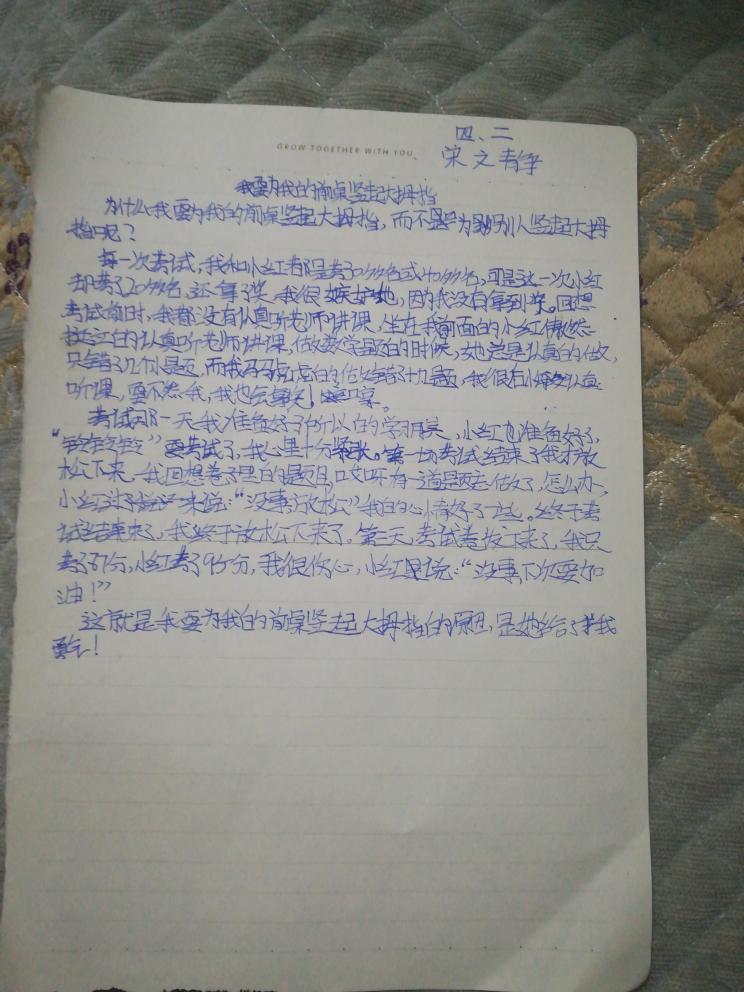 GROW TOGETHER WITH YOU
四、二
宋文静
我要为我的前桌竖起大拇指
为什么我要为我的前桌竖起大拇指,而不是为别人竖起大拇
指呢?
每一次考试,我和小红都是考30多名或40多名,可是这一次小红
却考了20多名,还拿了奖,我很嫉妒她,因为我没有拿到奖。回想
考试前时,我都没有认真听老师讲课,坐在我前面的小红
的认真听老师讲课,做数学题的时候,她总是认真的做,
只错了几个题,而我马马虎虎的做错了十几题,我很后悔没认真
听课,要不然我,我也会拿奖。
考试那一天我准备好了所以的学习用具,小红也准备好了,
“铃铃铃”要考试了,我心里十分紧张。第一场考试结束了我才放
松下来,我回想卷子里的题目,哎呀有一道题忘做了,怎么办,
小红过来说:“没事,放松”我的心情好了一些。终于考
试结束了,我终于放松下来了。第二天,考试卷发下来了,我只
考了87分,小红考了95分,我很伤心,小红说:“没事下次要加
油!”
这就是我要为我的前桌竖起大拇指的原因,是她给了我
勇气!